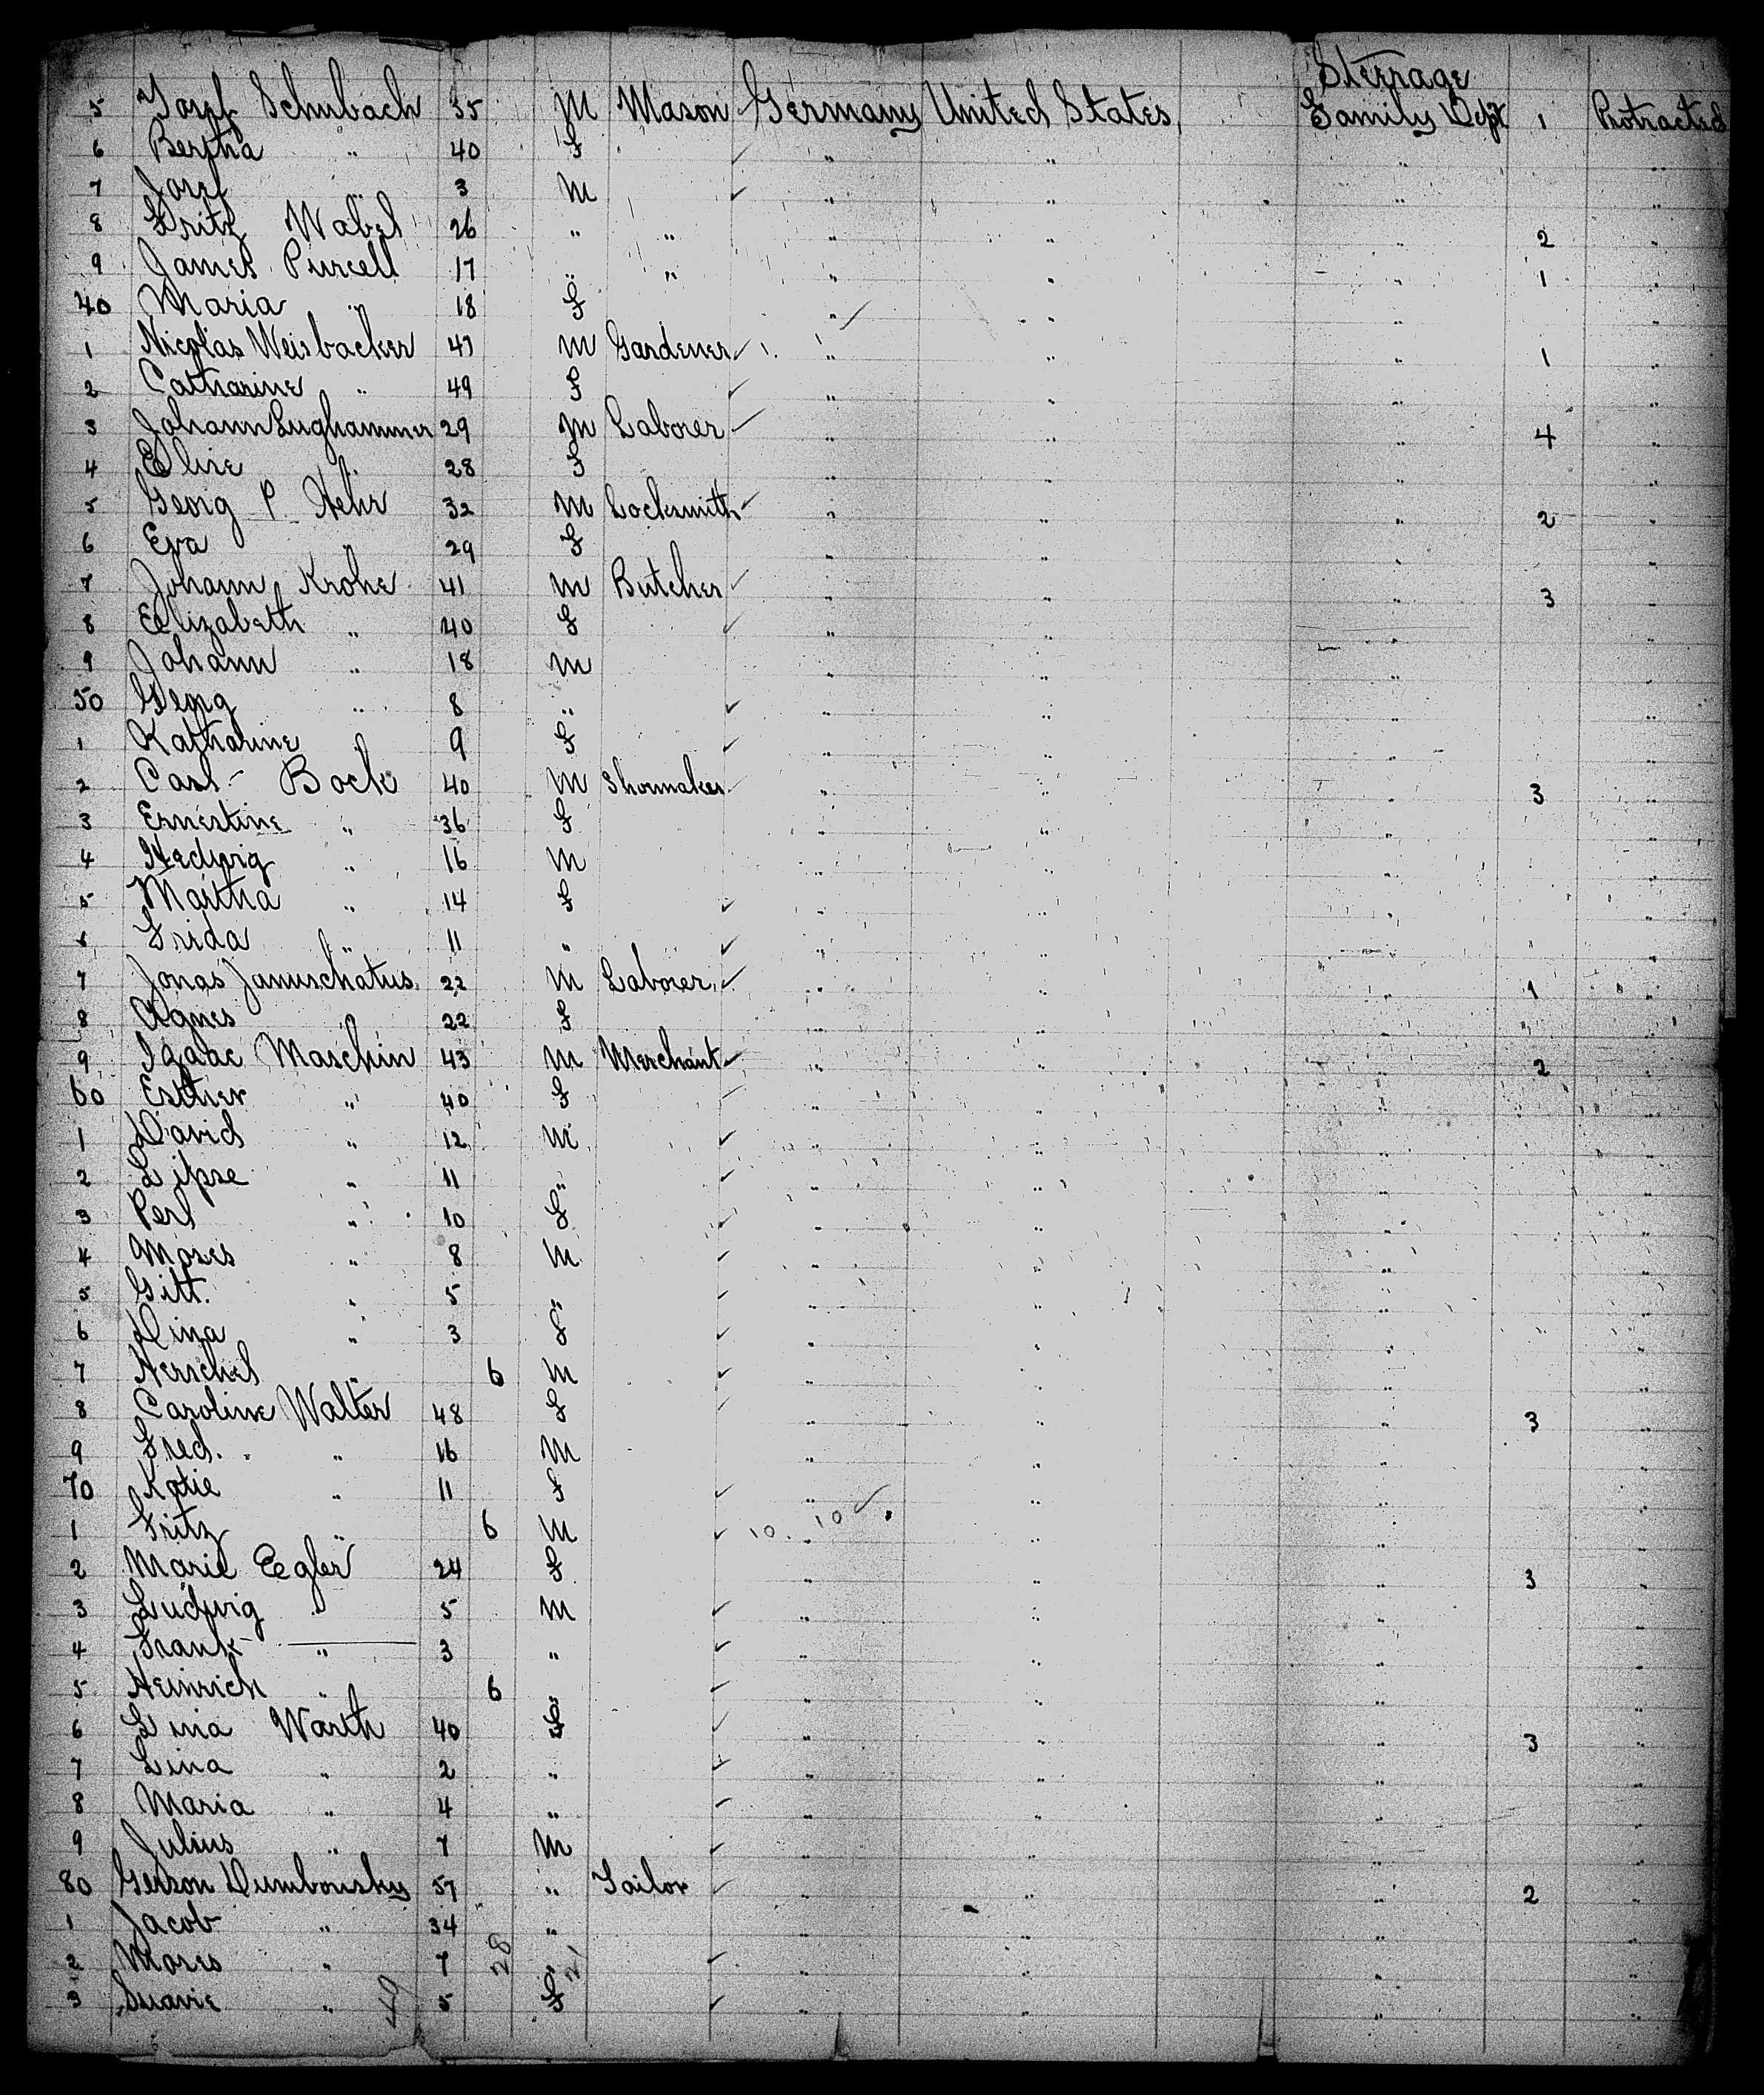 Steerage
5 Josef Schubach 35 M Mason Germany United States Family Dept 1 Protracted
6 Bertha " 40 F " " " "
7 Josef " 3 M " " " "
8 Fritz Wabel 26 " " " " " 2 "
9 James Purcell 17 " " " " " 1 "
40 Maria " 18 F " " " "
1 Nicolas Weisbacker 47 M Gardener " " " 1 "
2 Catharine " 49 F " " " "
3 Johann Lughammer 29 M Laborer " " " 4 "
4 Eline " 28 F " " " "
5 Georg P. Hehr 32 M Locksmith " " " 2 "
6 Eva " 29 F " " " "
7 Johann Krohe 41 M Butcher " " " 3 "
8 Elizabeth " 40 F " " " "
9 Johann " 18 M " " " "
50 Georg " 8 " " " " "
1 Katharine " 9 F " " " "
2 Carl Bock 40 M Shoemaker " " " 3 "
3 Ernestine " 36 F " " " "
4 Hedwig " 16 M " " " "
5 Martha " 14 F " " " "
6 Frida " 11 " " " " "
7 Jonas Januschatus 22 M Laborer " " " 1 "
8 Agnes " 22 F " " " "
9 Isaac Maschin 43 M Merchant " " " 2 "
60 Esther " 40 F " " " "
1 David " 12 M " " " "
2 Lipse " 11 " " " " "
3 Perl " 10 F " " " "
4 Moses " 8 M " " " "
5 Gitt. " 5 " " " " "
6 Dina " 3 F " " " "
7 Herschel " 6 M " " " "
8 Caroline Walter 48 F " " " 3 "
9 Fred. " 16 M " " " "
70 Katie " 11 F " " " "
1 Fritz " 6 M 10. 10 " " " "
2 Marie Eegler 24 F " " " 3 "
3 Ludwig " 5 M " " " "
4 Frank " 3 " " " " "
5 Heinrich " 6 " " " " "
6 Lina Warth 40 F " " " 3 "
7 Lina " 2 " " " " "
8 Maria " 4 " " " " "
9 Julius " 7 M " " " "
80 Gerson Dumbonsky 57 " Tailor " " " 2 "
1 Jacob " 34 " " " " "
2 Moses " 7 28 " 21 " " " "
3 " 49 5 F " " " "